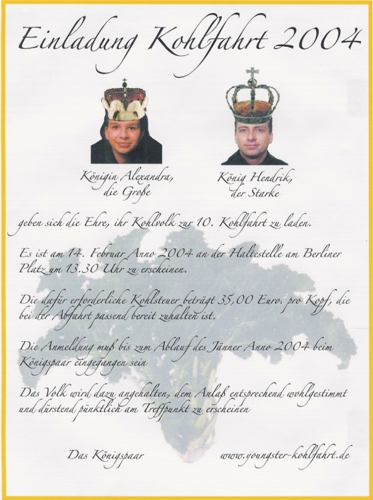 Einladung Kohlfahrt 2004
Königin Alexandra,
die Große
König Hendrik,
der Starke
geben sich die Ehre, ihr Kohlvolk zur 10. Kohlfahrt zu laden.
Es ist am 14. Februar Anno 2004 an der Haltestelle am Berliner
Platz um 13.30 Uhr zu erscheinen.
Die dafür erforderliche Kohlsteuer beträgt 35,00 Euro, pro Kopf, die
bei der Abfahrt passend bereit zuhalten ist.
Die Anmeldung muß bis zum Ablauf des Jänner Anno 2004 beim
Königspaar eingegangen sein
Das Volk wird dazu angehalten, dem Anlaß entsprechend wohlgestimmt
und dürstend pünktlich am Treffpunkt zu erscheinen
Das Königspaar
www.youngster-kohlfahrt.de